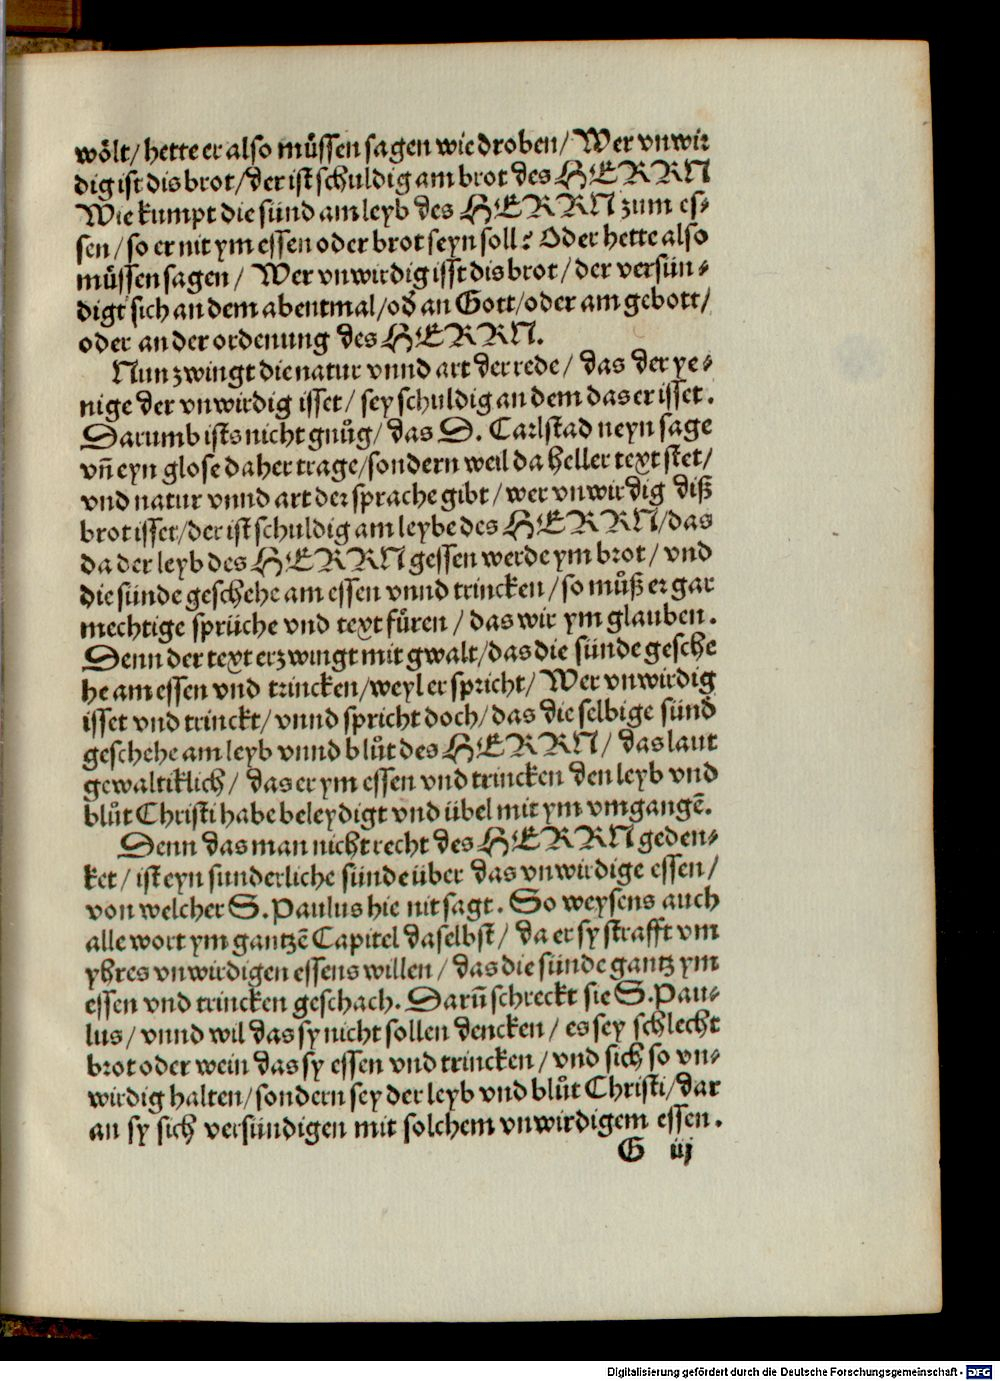 wölt/ hette er also müssen sagen wie droben/ Wer vnwir
dig ist dis brot/ der ist schuldig am brot des HERRN
Wie kumpt die sünd am leyb des HERRN zum es⸗
sen/ so er nit ym essen oder brot seyn soll? Oder hette also
müssen sagen/ Wer vnwirdig isst dis brot/ der versün⸗
digt sich an dem abentmal/ od̕ an Gott/ oder am gebott/
oder an der ordenung des HERRN.
Nun zwingt die natur vnnd art der rede/ das der ye⸗
nige der vnwirdig isset/ sey schuldig an dem das er isset.
Darumb ists nicht gnůg/ das D. Carlstad neyn sage
vñ eyn glose daher trage/ sondern weil da heller text stet/
vnd natur vnnd art der sprache gibt/ wer vnwirdig diß
brot isset/ der ist schuldig am leybe des HERRN/ das
da der leyb des HERRN gessen werde ym brot/ vnd
die sünde geschehe am essen vnnd trincken/ so můß er gar
mechtige sprüche vnd text füren/ das wir ym glauben.
Denn der text erzwingt mit gwalt/ das die sünde gesche
he am essen vnd trincken/ weyl er spricht/ Wer vnwirdig
isset vnd trinckt/ vnnd spricht doch/ das die selbige sünd
geschehe am leyb vnnd blůt des HERRN/ das laut
gewaltiklich/ das er ym essen vnd trincken den leyb vnd
blůt Christi habe beleydigt vnd übel mit ym vmgangē.
Denn das man nicht recht des HERRN geden⸗
ket/ ist eyn sunderliche sünde über das vnwirdige essen/
von welcher S. Paulus hie nit sagt. So weysens auch
alle wort ym gantzē Capitel daselbst/ da er sy strafft vm
yhres vnwirdigen essens willen/ das die sünde gantz ym
essen vnd trincken geschach. Darū schreckt sie S. Pau⸗
lus/ vnnd wil das sy nicht sollen dencken/ es sey schlecht
brot oder wein das sy essen vnd trincken/ vnd sich so vn⸗
wirdig halten/ sondern sey der leyb vnd blůt Christi/ dar
an sy sich versündigen mit solchem vnwirdigem essen.
G iij
Digitalisierung gefördert durch die Deutsche Forschungsgemeinschaft - DFG